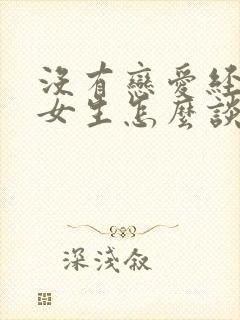 沒有戀愛經
女生怎麼談
深淺叙